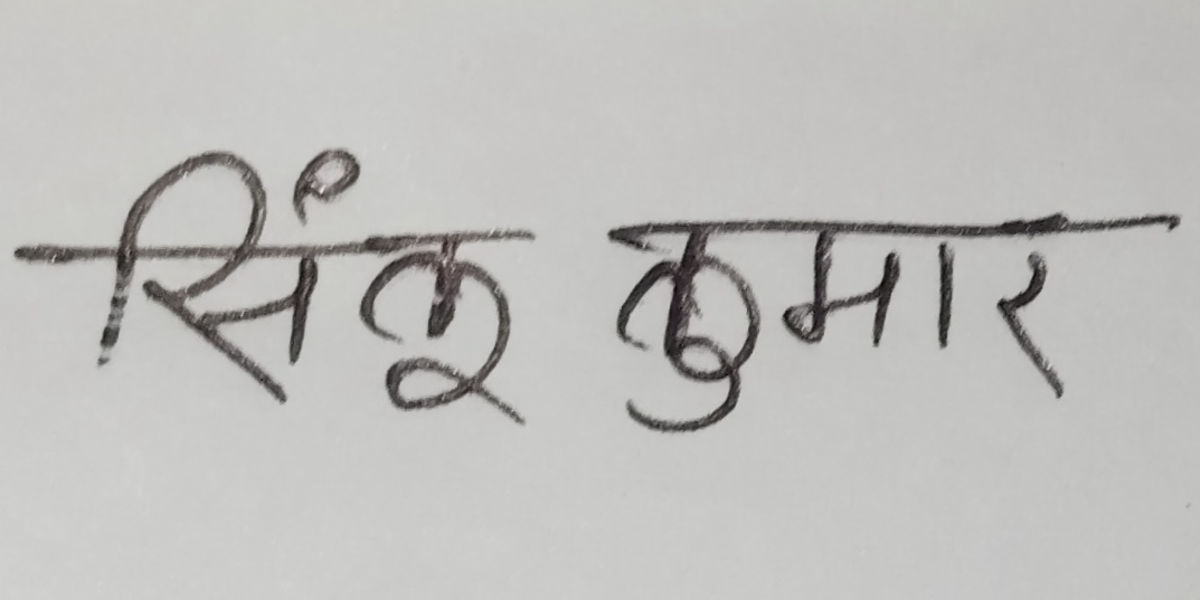 सिंकू कुमार